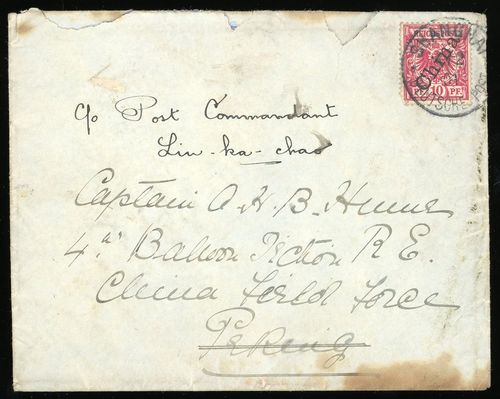 SHANGHAI
China
10 PF
DEUTSCHE POST
c/o Post Commandant
Lin-ka-chao
Captain A. H. B. Hume
4th Balloon Section R. E.
China Field Force
Peking